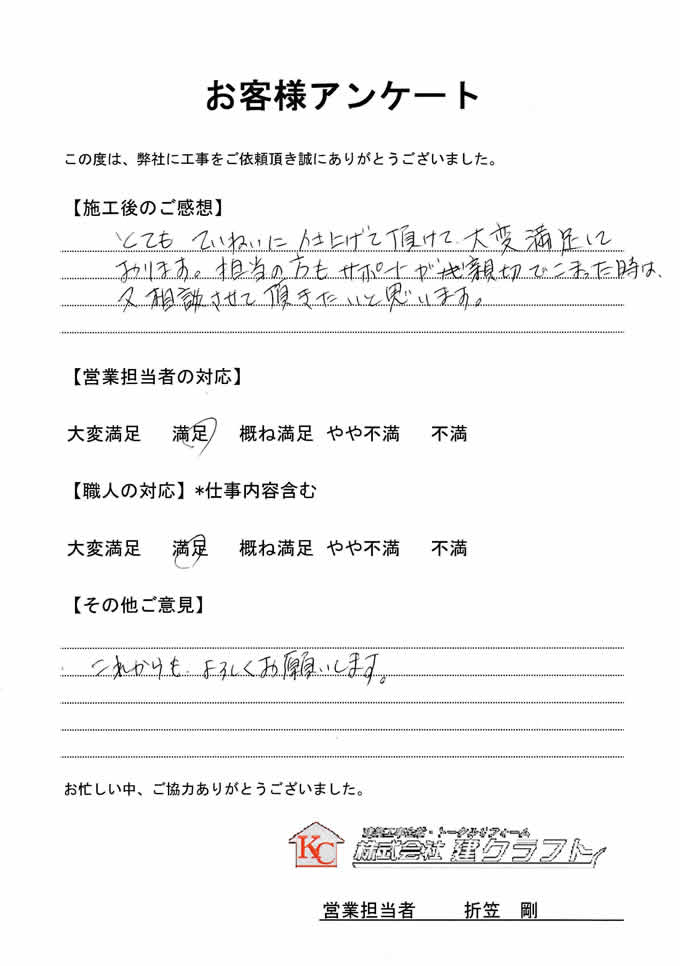 お客様アンケート
この度は、弊社に工事をご依頼頂き誠にありがとうございました。
【施工後のご感想】
とても ていねいに 仕上げて頂けて 大変満足して
おります。担当の方も サポートが 親切で こまった時は、
又 相談させて 頂きたいと 思います。
【営業担当者の対応】
大変満足 満足 概ね満足 やや不満 不満
【職人の対応】*仕事内容含む
大変満足 満足 概ね満足 やや不満 不満
【その他ご意見】
これからも よろしくお願いします。
お忙しい中、ご協力ありがとうございました。
KC
・トータルリフォーム
株式会社 建クラフト
営業担当者 折笠 剛